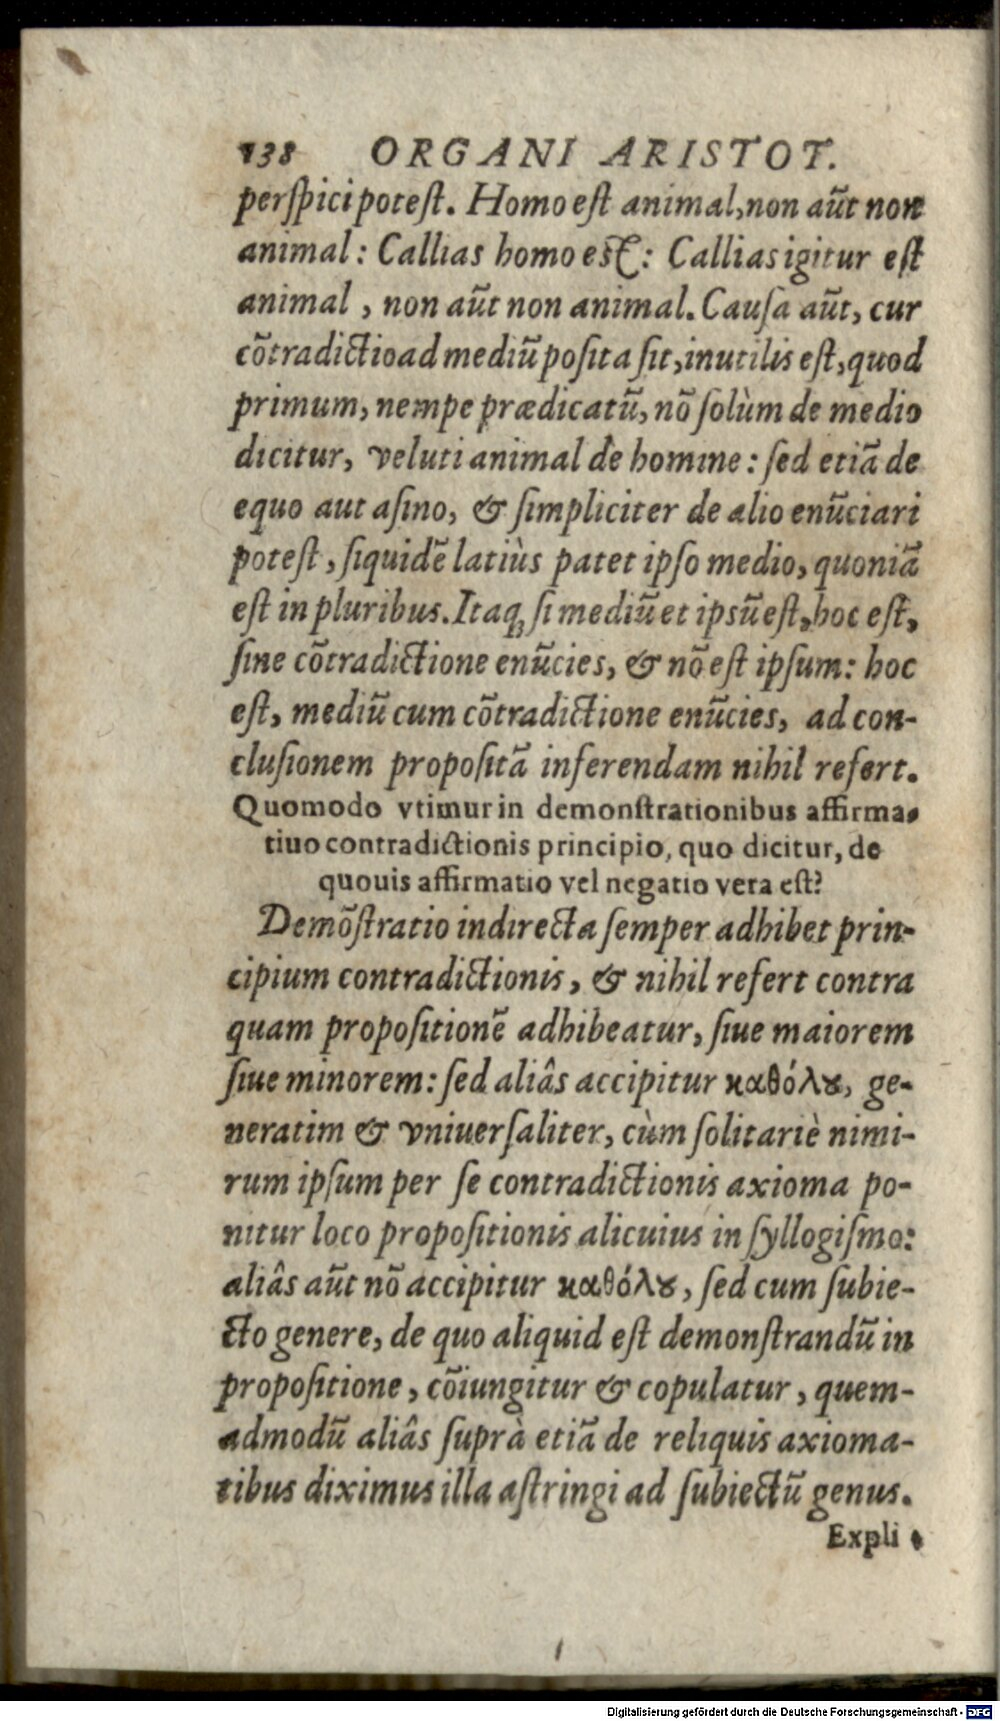 138 ORGANI ARISTOT.
perſpici poteſt. Homo eſt animal, non aūt non
animal: Callias homo eſt: Callias igitur eſt
animal, non aūt non animal. Cauſa aūt, cur
cōtradictio ad mediū poſita ſit, inutilis eſt, quod
primum, nempe prædicatū, nō ſolùm de medio
dicitur, veluti animal de homine: ſed etiā de
equo aut aſino, & ſimpliciter de alio enūciari
poteſt, ſiquidē latiùs patet ipſo medio, quoniā
eſt in pluribus. Itaq; ſi mediū et ipſū eſt, hoc eſt,
ſine cōtradictione enūcies, & nō eſt ipſum: hoc
eſt, mediū cum cōtradictione enūcies, ad con-
cluſionem propoſitā inferendam nihil refert.
Quomodo vtimur in demonſtrationibus affirma-
tiuo contradictionis principio, quo dicitur, de
quouis affirmatio vel negatio vera eſt?
Demōſtratio indirecta ſemper adhibet prin-
cipium contradictionis, & nihil refert contra
quam propoſitionē adhibeatur, ſiue maiorem
ſiue minorem: ſed aliâs accipitur καθόλȣ, ge-
neratim & vniuerſaliter, cùm ſolitariè nimi-
rum ipſum per ſe contradictionis axioma po-
nitur loco propoſitionis alicuius in ſyllogiſmo:
aliâs aūt nō accipitur καθόλȣ, ſed cum ſubie-
cto genere, de quo aliquid eſt demonſtrandū in
propoſitione, cōiungitur & copulatur, quem-
admodū aliâs ſuprà etiā de reliquis axioma-
tibus diximus illa aſtringi ad ſubiectū genus.
Expli-
Digitalisierung gefördert durch die Deutsche Forschungsgemeinschaft - DFG